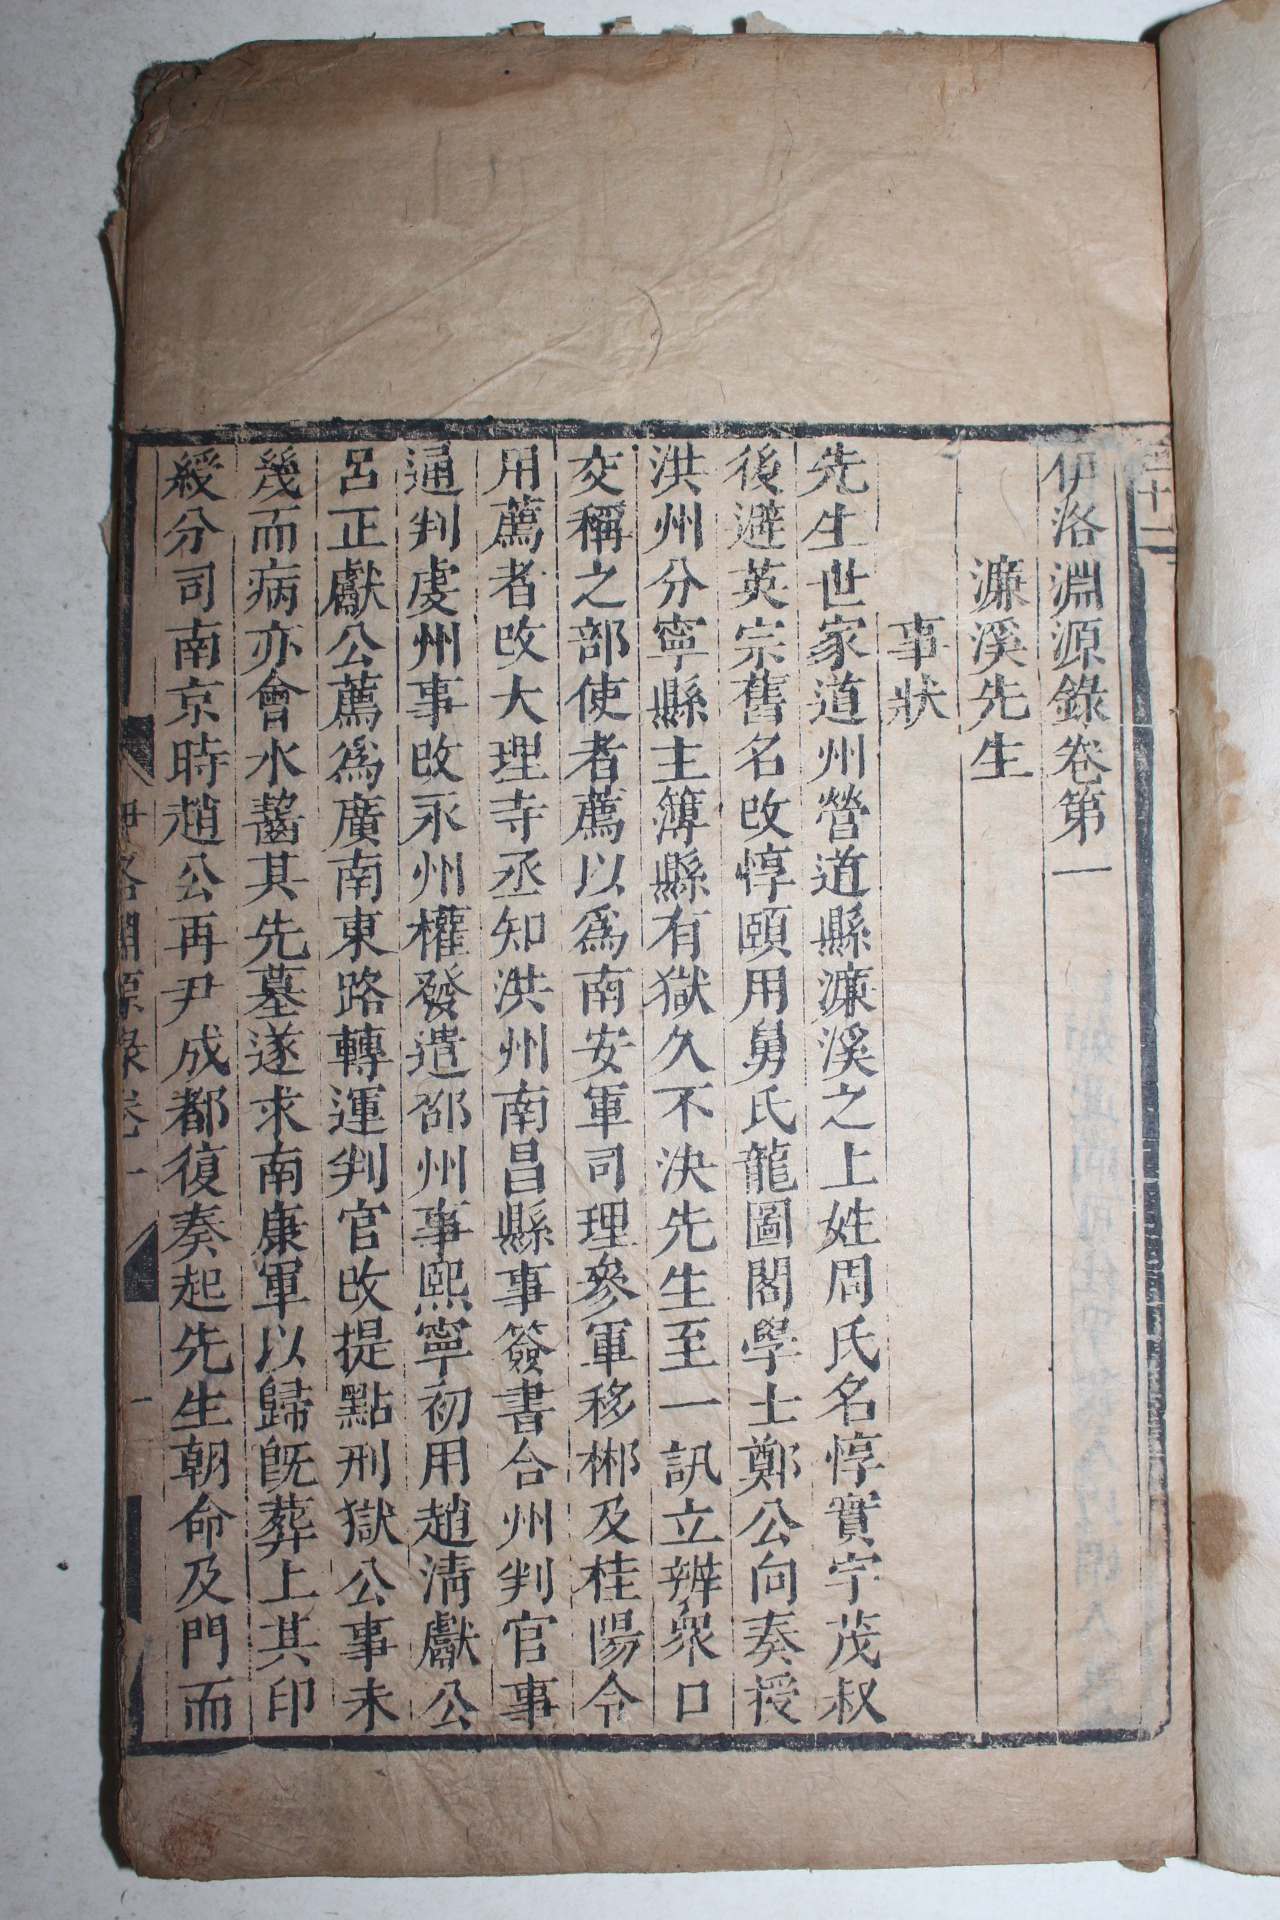 伊洛淵源錄卷第一
濂溪先生
事狀
先生世家道州營道縣濂溪之上姓周氏名惇實字茂叔
後避英宗舊名改惇頤用舅氏龍圖閣學士鄭公向奏授
洪州分寧縣主簿縣有獄久不決先生至一訊立辨衆口
交稱之部使者薦以爲南安軍司理參軍移郴及桂陽令
用薦者改大理寺丞知洪州南昌縣事簽書合州判官事
通判虔州事改永州權發遣邵州事熙寧初用趙清獻公
呂正獻公薦爲廣南東路轉運判官改提點刑獄公事未
幾而病亦會水齧其先墓遂求南康軍以歸旣葬上其印
綬分司南京時趙公再尹成都復奏起先生朝命及門而
伊洛淵源錄卷一
一